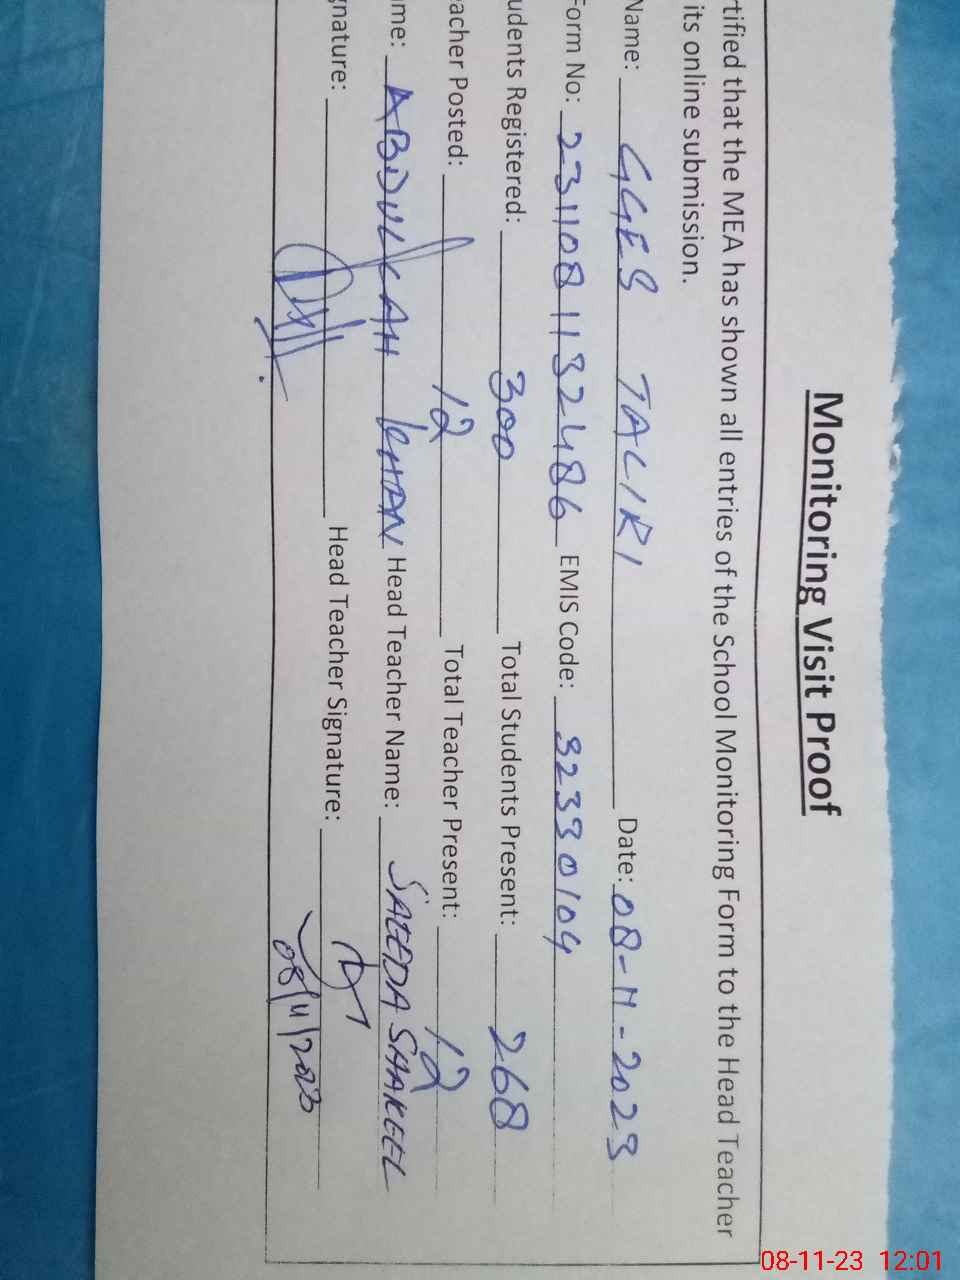 Monitoring Visit Proof
rtified that the MEA has shown all entries of the School Monitoring Form to the Head Teacher
its online submission.
Name: GGES TALIRI Date: 08-11-2023
Form No: 231108 1132486 EMIS Code: 32330104
udents Registered: 300 Total Students Present: 268
eacher Posted: 12 Total Teacher Present: 12
me: ABDULLAH KHAN Head Teacher Name: SAEEDA SHAKEEL
gnature: Head Teacher Signature:
08/11/2023
08-11-23 12:01